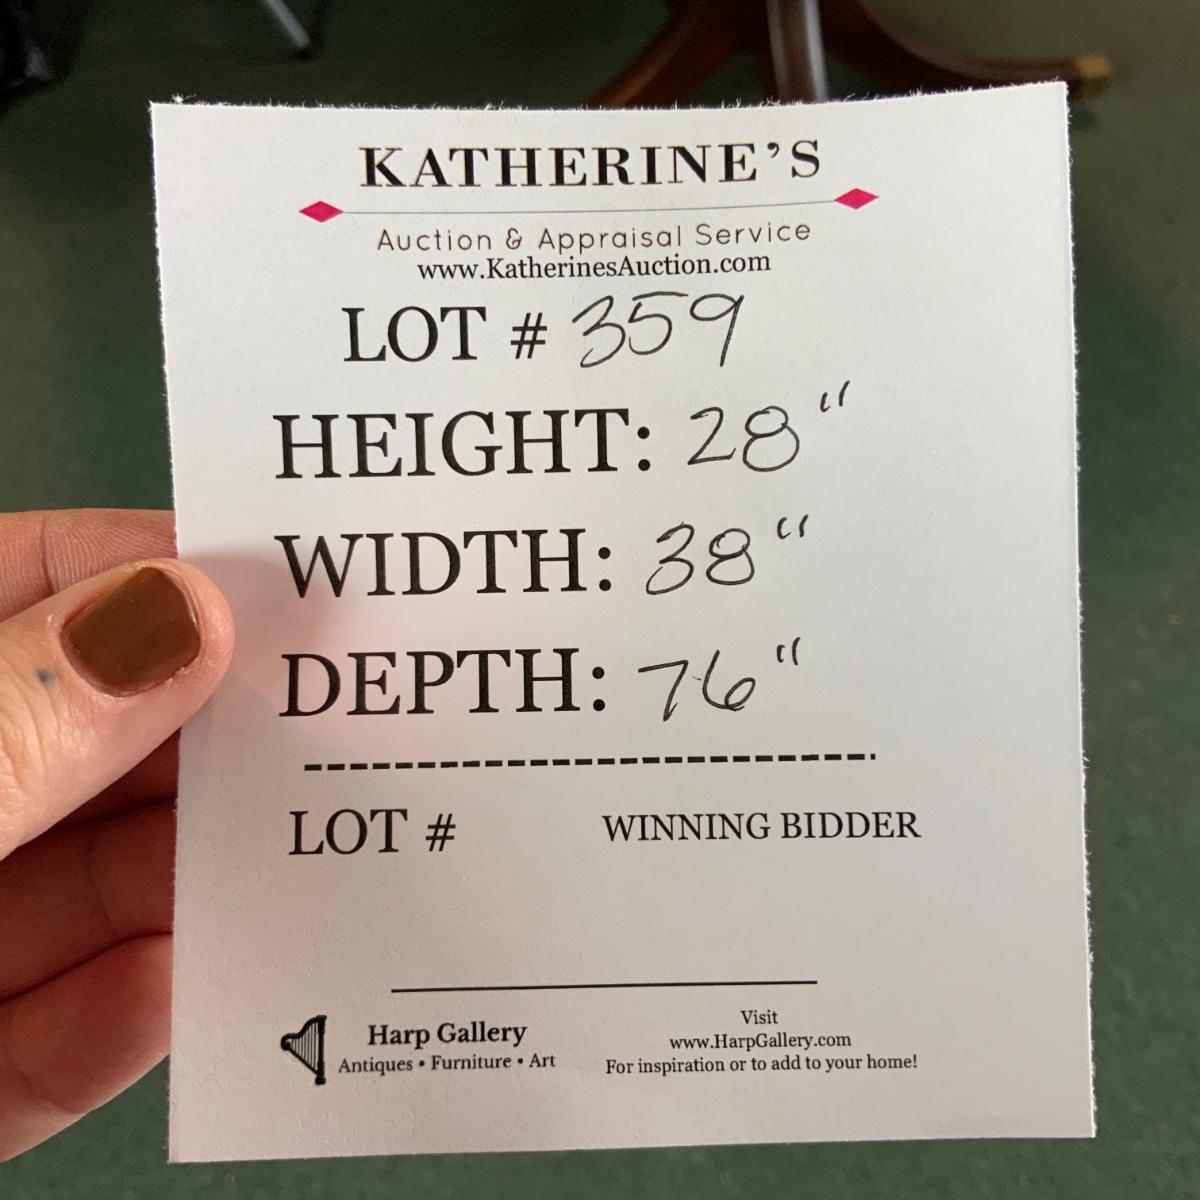 KATHERINE'S
Auction & Appraisal Service
www.KatherinesAuction.com
LOT # 359
HEIGHT: 28"
WIDTH: 38"
DEPTH: 76"
LOT # WINNING BIDDER
Harp Gallery
Antiques • Furniture • Art
Visit
www.HarpGallery.com
For inspiration or to add to your home!